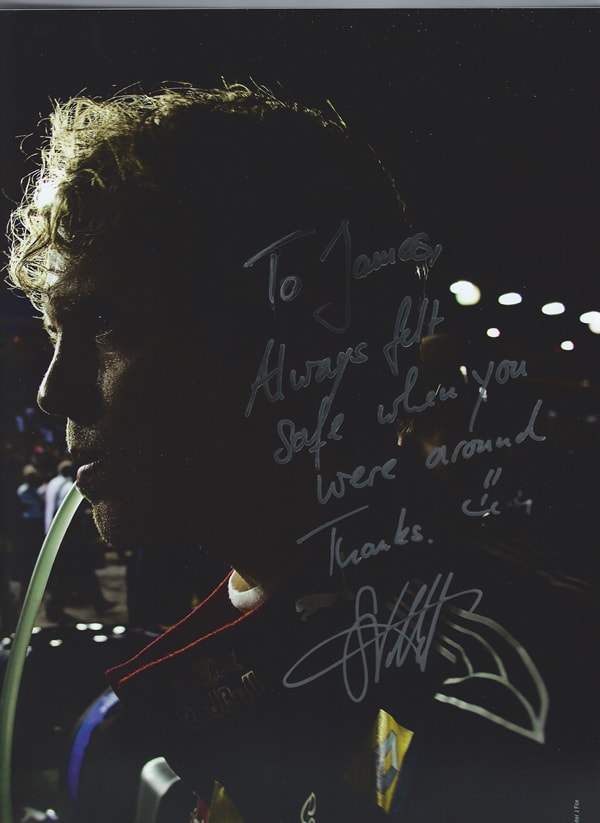 To James,
Always felt
safe when you
were around
Thanks.
Red Bull